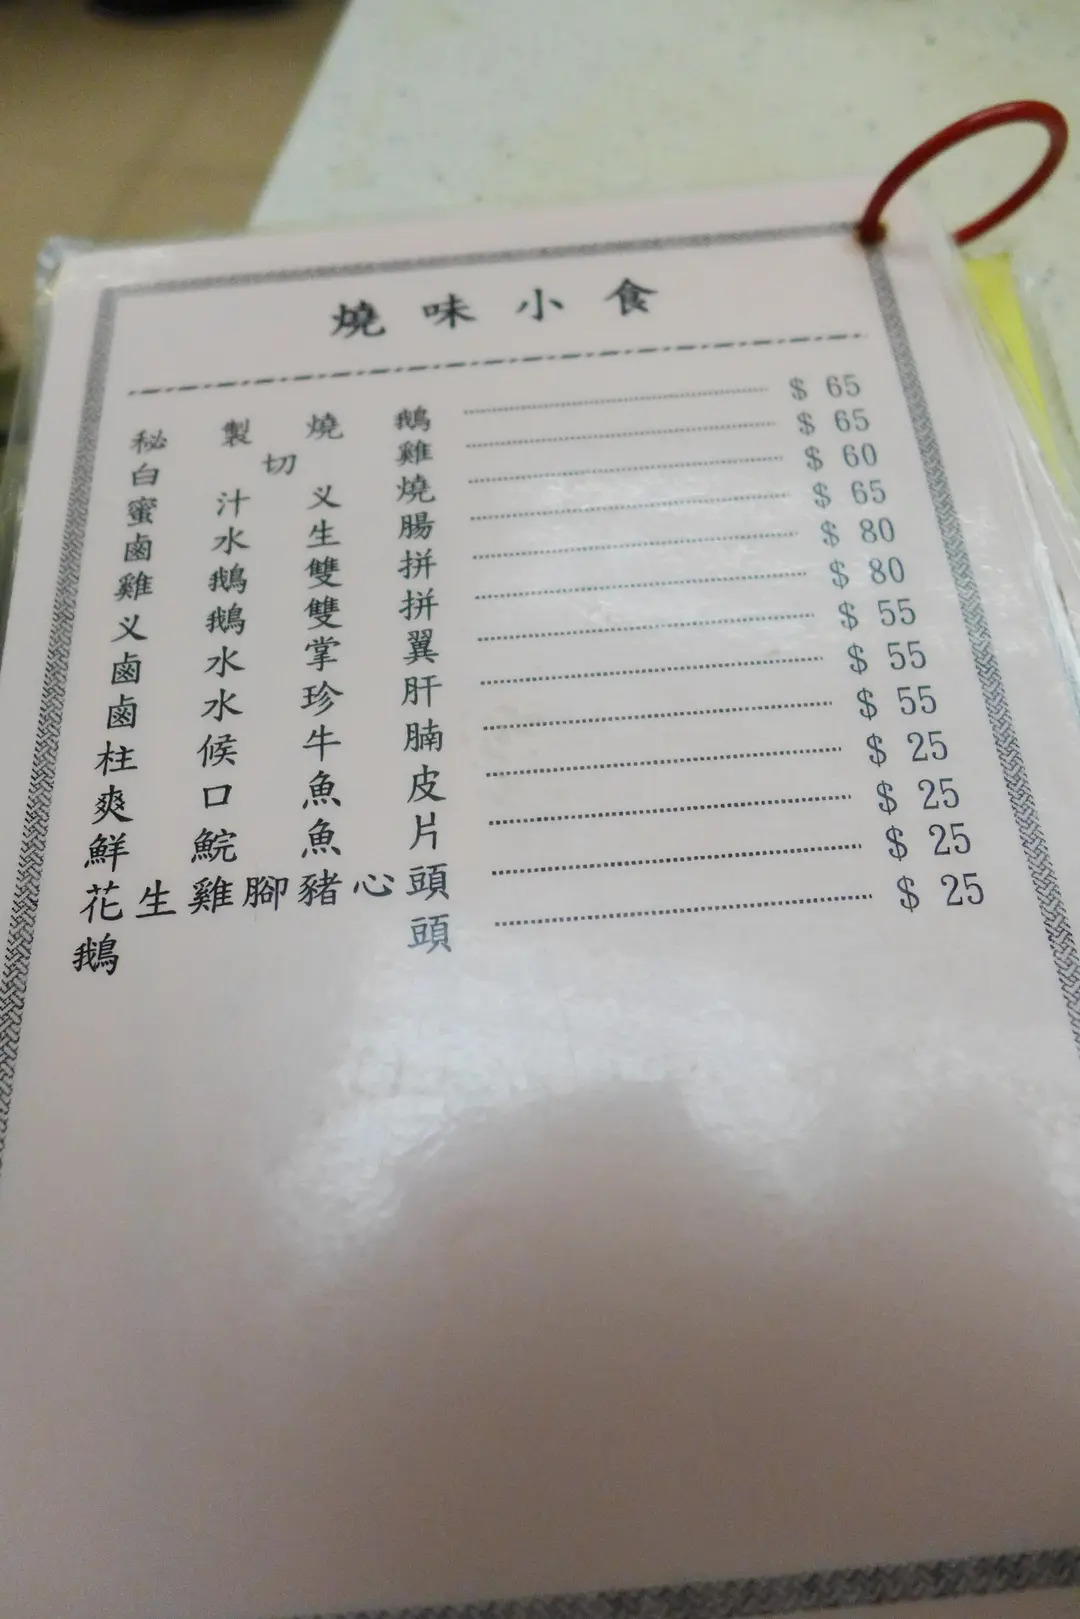 燒味小食
秘製燒鵝 $ 65
白切雞 $ 65
蜜汁义燒 $ 60
鹵水生腸 $ 65
雞鵝雙拼 $ 80
义鵝雙拼 $ 80
鹵水掌翼 $ 55
鹵水珍肝 $ 55
柱候牛腩 $ 55
爽口魚皮 $ 25
鮮鯇魚片 $ 25
花生雞腳豬心頭 $ 25
鵝頭 $ 25